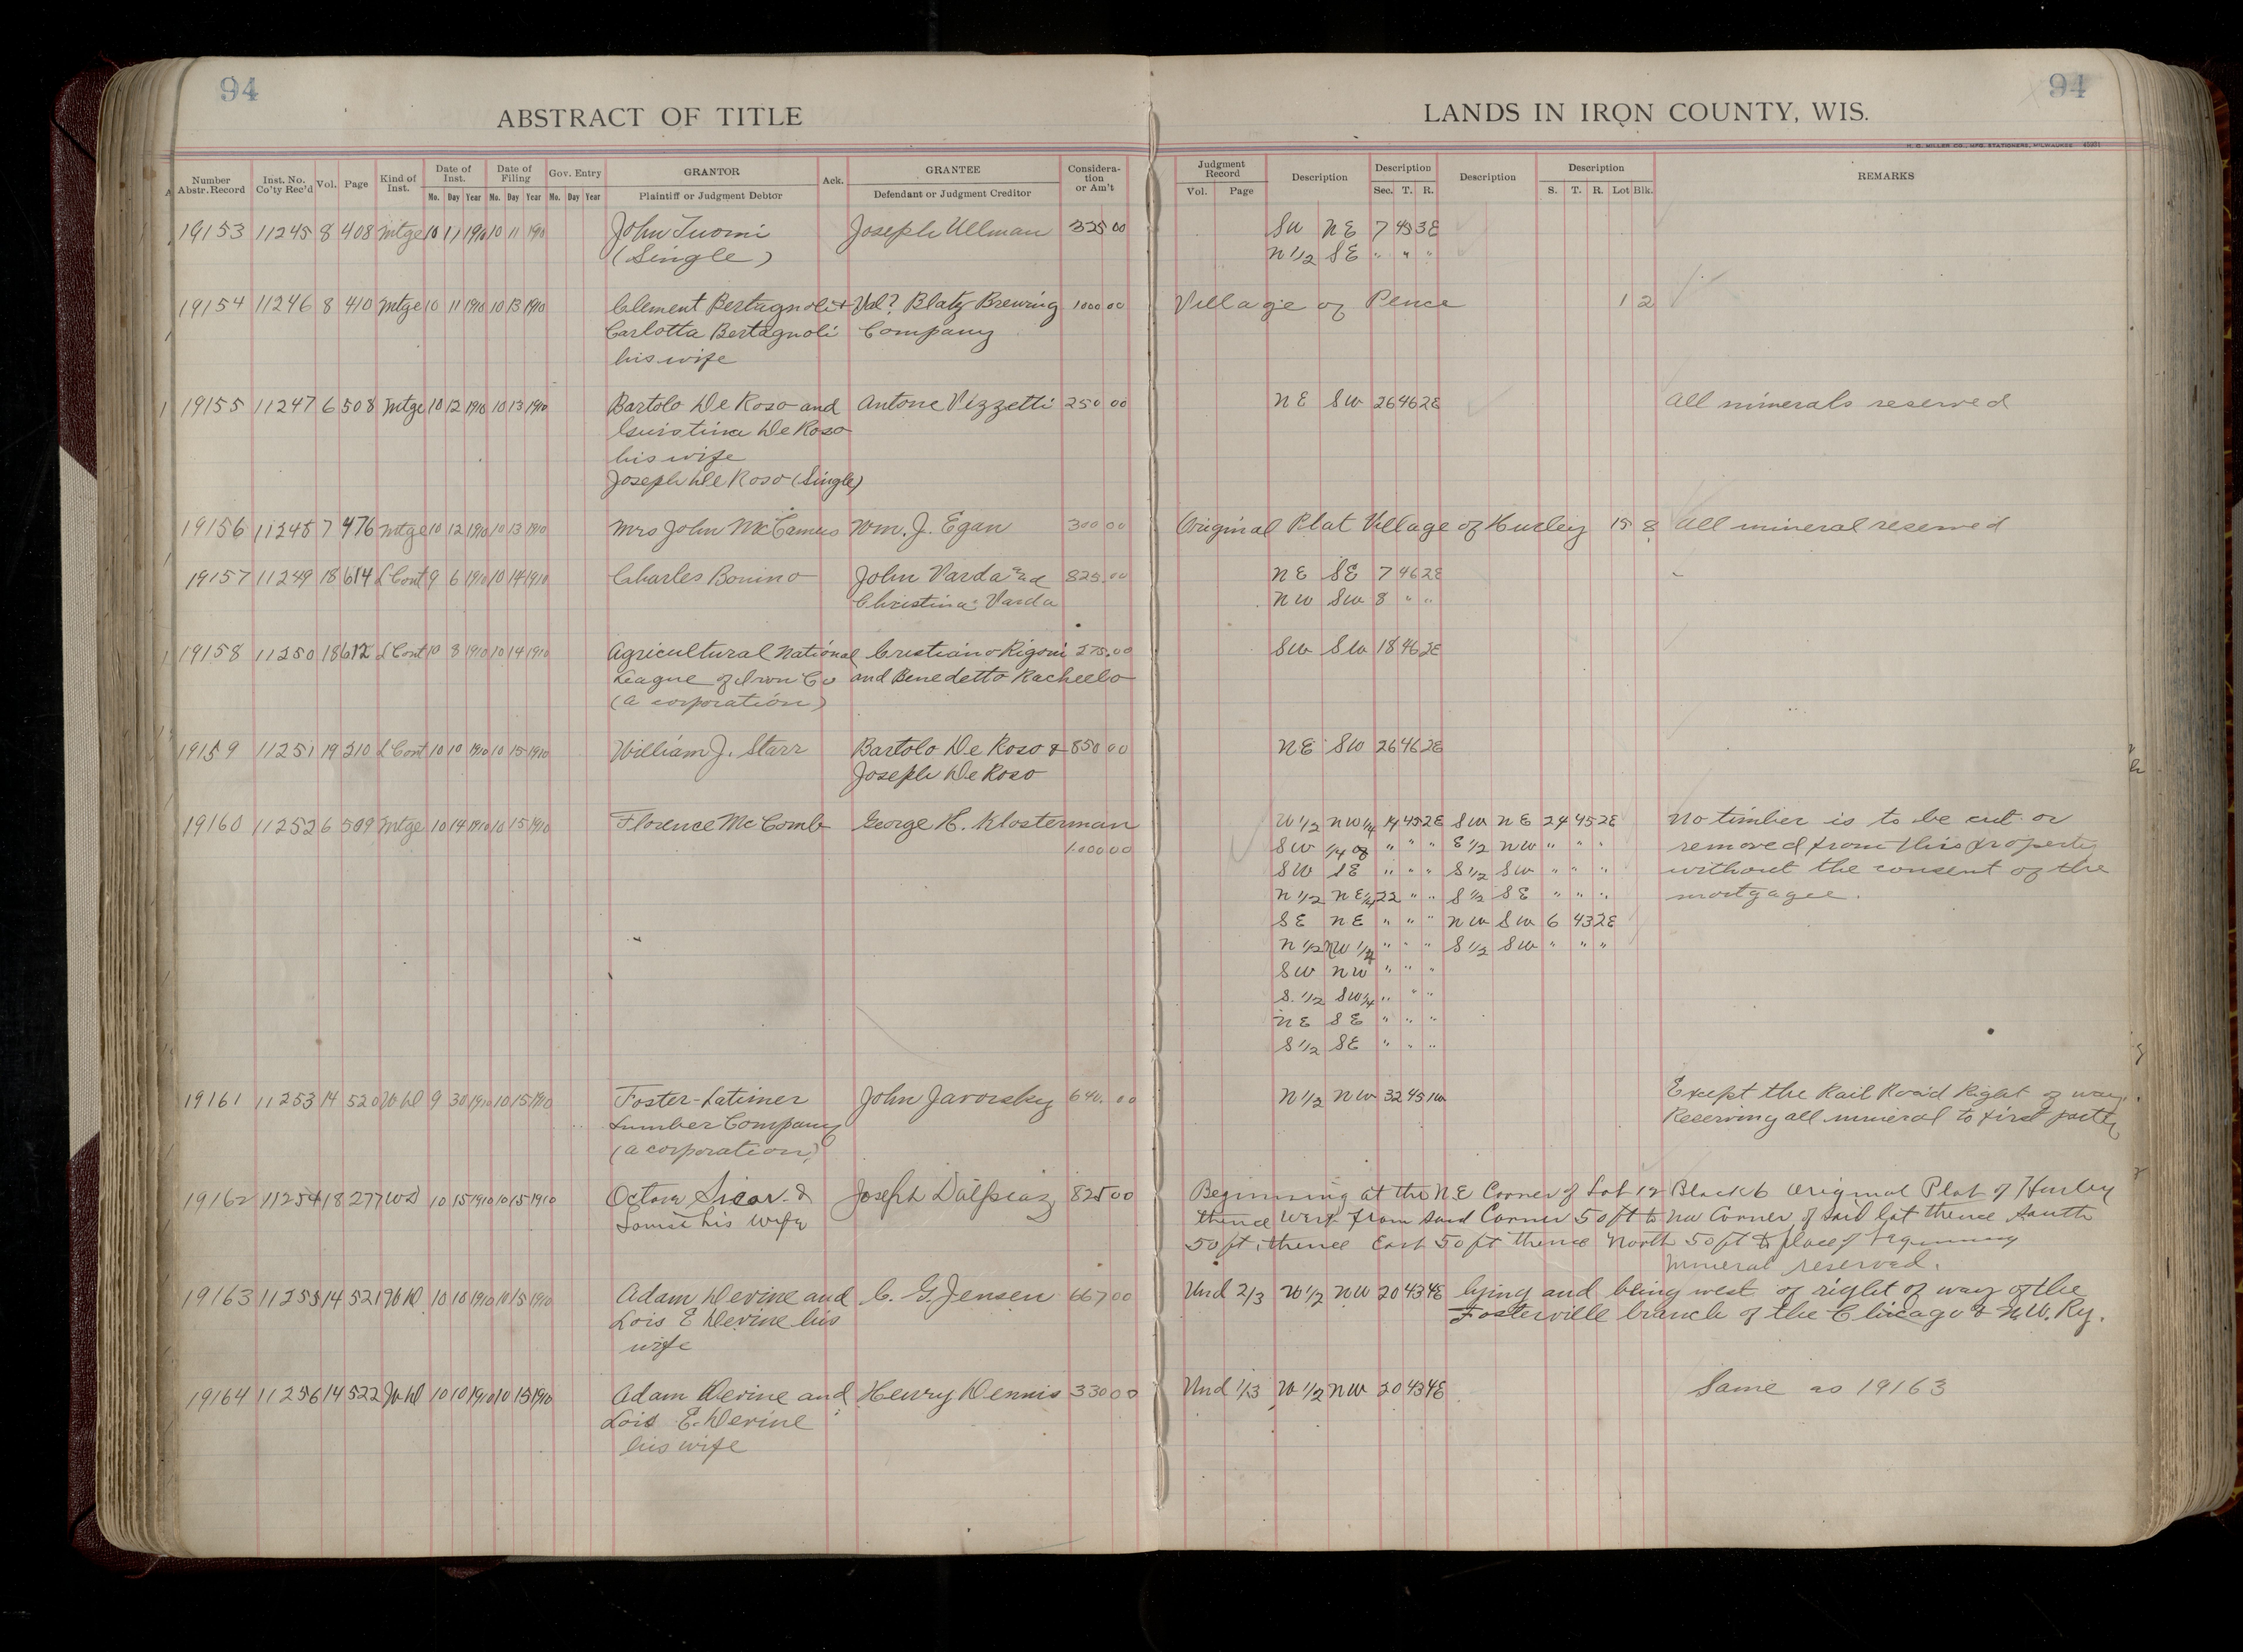 94
94
ABSTRACT OF TITLE
LANDS IN IRON COUNTY, WIS.
H. G. MILLER CO., MFG. STATIONERS, MILWAUKEE
Number Abstr. Record Inst. No. Co'ty Rec'd Vol. Page Kind of Inst. Date of Inst. Mo. Day Year Date of Filing Mo. Day Year Gov. Entry Mo. Day Year GRANTOR Plaintiff or Judgment Debtor Ack. GRANTEE Defendant or Judgment Creditor Considera-tion or Am't Judgment Record Vol. Page Description Description Sec. T. R. Description Description S. T. R. Lot Blk. REMARKS
19153 11245 8 408 Mtge 10 11 1910 10 11 1910 John Tuomi Joseph Ullman 325 00 SW NE 7 45 3E
(Single) N 1/2 SE " " "
19154 11246 8 410 Mtge 10 11 1910 10 13 1910 Clement Bertagnoli + Val? Blatz Brewing 1000 00 Village of Pence 1 2
Carlotta Bertagnoli Company
his wife
19155 11247 6 508 Mtge 10 12 1910 10 13 1910 Bartolo De Roso and Antone Vizzetti 250 00 NE SW 26 46 2E All minerals reserved
Guistina De Roso
his wife
Joseph De Roso (Single)
19156 11248 7 476 Mtge 10 12 1910 10 13 1910 Mrs John McCamus Wm. J. Egan 300 00 Original Plat Village of Hurley 15 8 All mineral reserved
19157 11249 18 614 L Cont 9 6 1910 10 14 1910 Charles Bonino John Varda and 825.00 NE SE 7 46 2E
Christina Varda NW SW 8 " "
19158 11250 18 612 L Cont 10 8 1910 10 14 1910 Agricultural National Cristiano Rigoni 275.00 SW SW 18 46 2E
League of Iron Co and Benedetto Rachelo
(a corporation)
19159 11251 19 310 L Cont 10 10 1910 10 15 1910 William J. Starr Bartolo De Roso & 850 00 NE SW 26 46 2E
Joseph De Roso
19160 11252 6 509 Mtge 10 14 1910 10 15 1910 Florence McComb George H. Klosterman W 1/2 NW 1/4 14 45 2E SW NE 24 45 2E No timber is to be cut or
1000 00 SW 1/4 of " " " E 1/2 NW " " " removed from this property
SW SE " " " S 1/2 SW " " " without the consent of the
N 1/2 NE 1/4 22 " " S 1/2 SE " " " mortgagee.
SE NE " " " NW SW 6 43 2E
N 1/2 NW 1/4 " " " S 1/2 SW " " "
SW NW " " "
S. 1/2 SW 1/4 " " "
NE SE " " "
S 1/2 SE " " "
19161 11253 14 520 W D 9 30 1910 10 15 1910 Foster-Latimer John Javorsky 640. 00 N 1/2 NW 32 45 1W Except the Rail Road Right of way.
Lumber Company Reserving all mineral to first party
(a corporation)
19162 11254 18 277 WD 10 15 1910 10 15 1910 Octave Sicar & Joseph Dalpiaz 825 00 Beginning at the NE Corner of Lot 12 Block 6 Original Plat of Hurley
Louise his wife thence West from said Corner 50 ft to NW Corner of said lot thence South
50 ft thence East 50 ft thence North 50 ft to place of beginning
Mineral reserved.
19163 11255 14 521 W D. 10 10 1910 10 15 1910 Adam Devine and C. G. Jensen 667 00 Und 2/3 W 1/2 NW 20 43 4E lying and being west of right of way of the
Lois E Devine his Fosterville branch of the Chicago & N.W. Ry.
wife
19164 11256 14 522 W D 10 10 1910 10 15 1910 Adam Devine and Henry Dennis 330 00 Und 1/3 W 1/2 NW 20 43 4E Same as 19163
Lois E. Devine
his wife